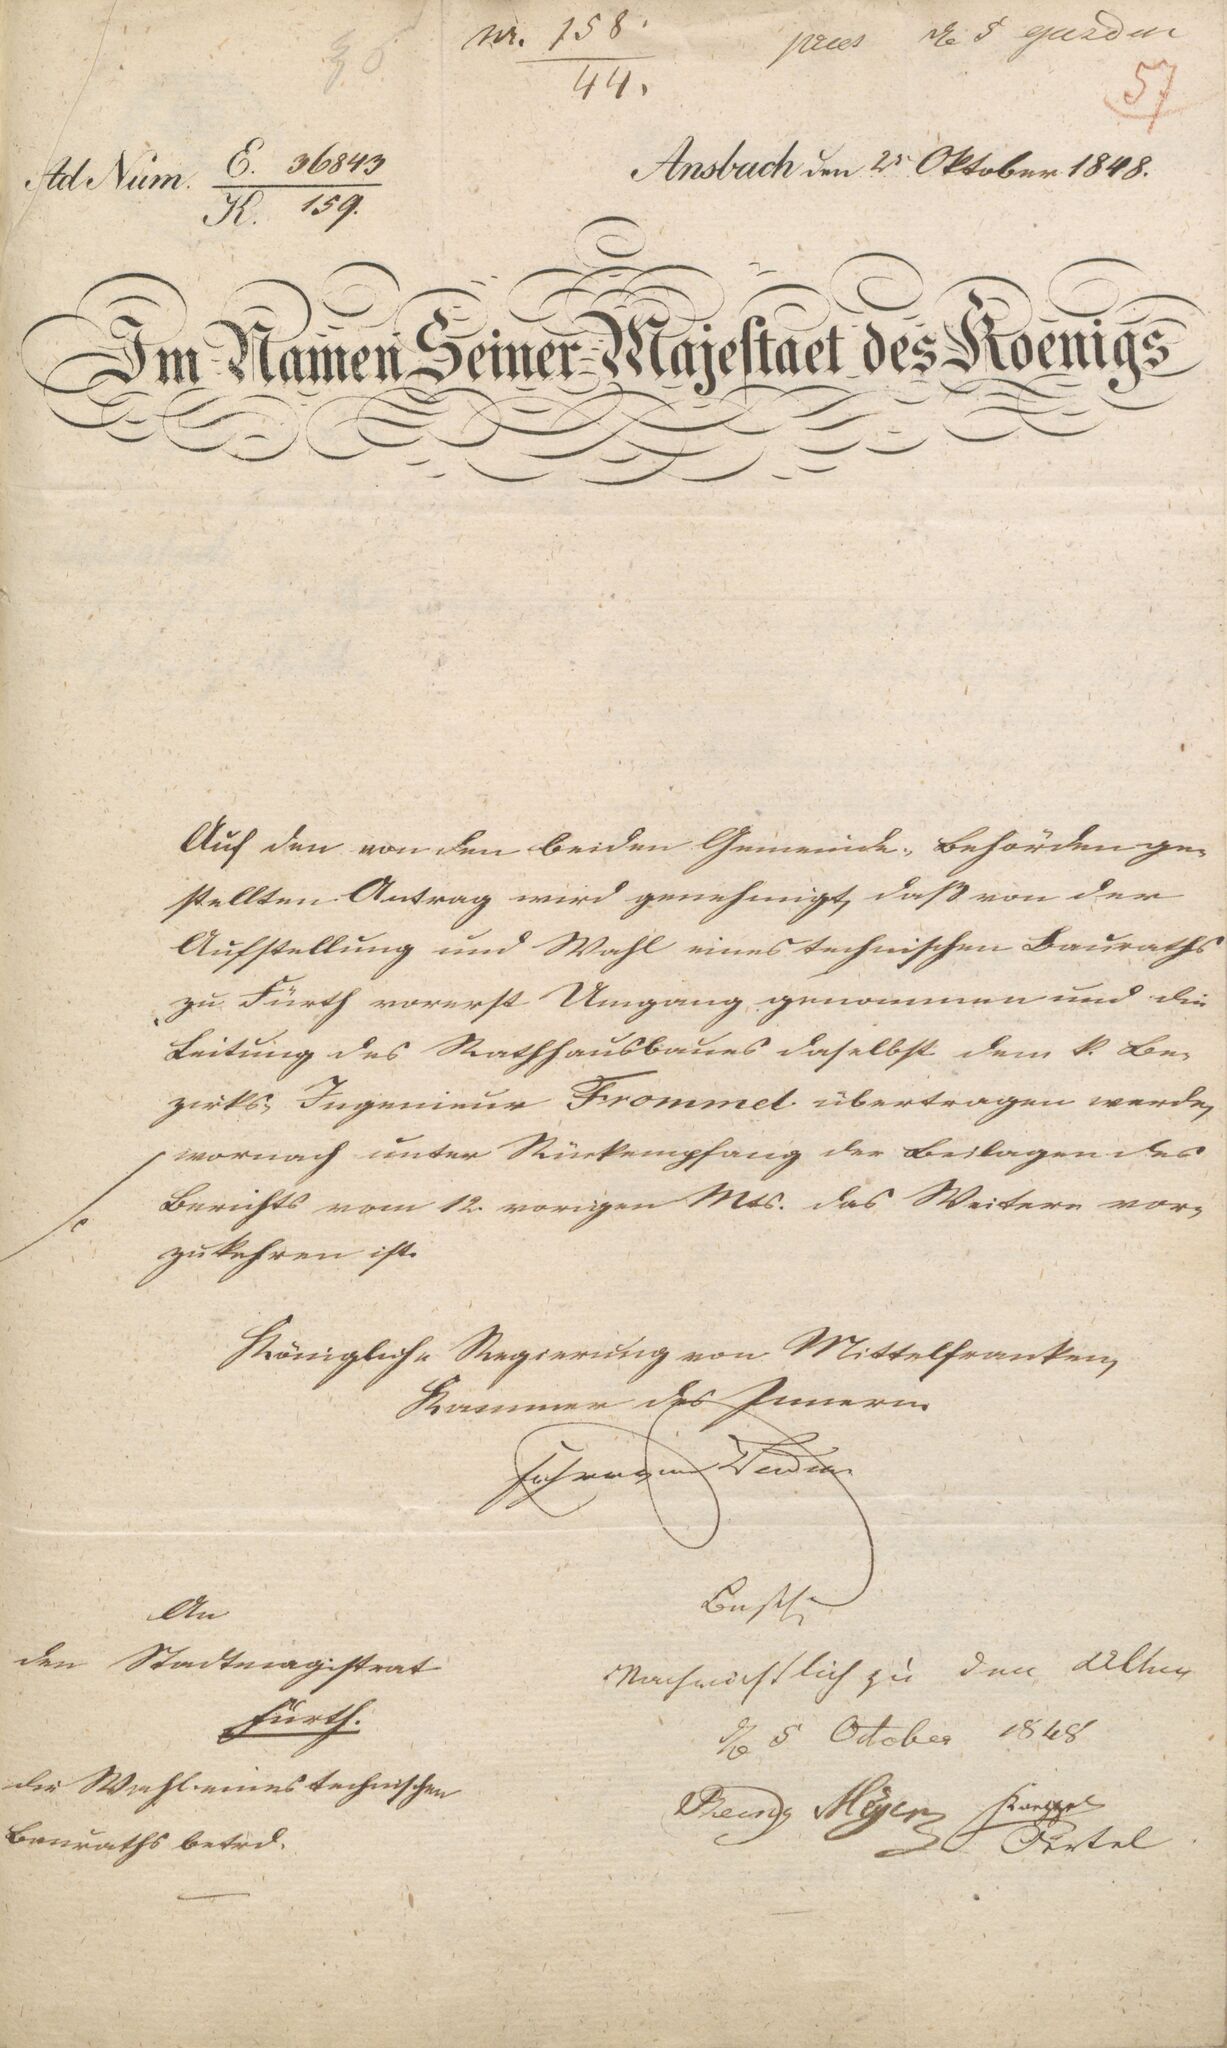 Nr. 158.
44.
57
Ad Num. E. 36843
K. 159.
Ansbach den 2n Oktober 1848.
Im Namen Seiner Majestaet des Koenigs
Auf den von den beiden Gemeinde-Behörden ge-
stellten Antrag wird genehmigt, daß von der
Aufstellung und Wahl eines technischen Bauraths
zu Fürth vorerst Umgang genommen und die
Leitung des Rathhausbaues daselbst dem k. Be-
zirks-Ingenieur Frommel übertragen werde,
wornach unter Rückempfang der Beilagen des
Berichts vom 12. vorigen Mts. das Weitere vor-
zukehren ist.
Königliche Regierung von Mittelfranken,
Kammer des Innern.
An
den Stadtmagistrat
Fürth.
die Wahl eines technischen
Bauraths betrd.
Beschl.
zu den Akten
5 October 1848
Meyer